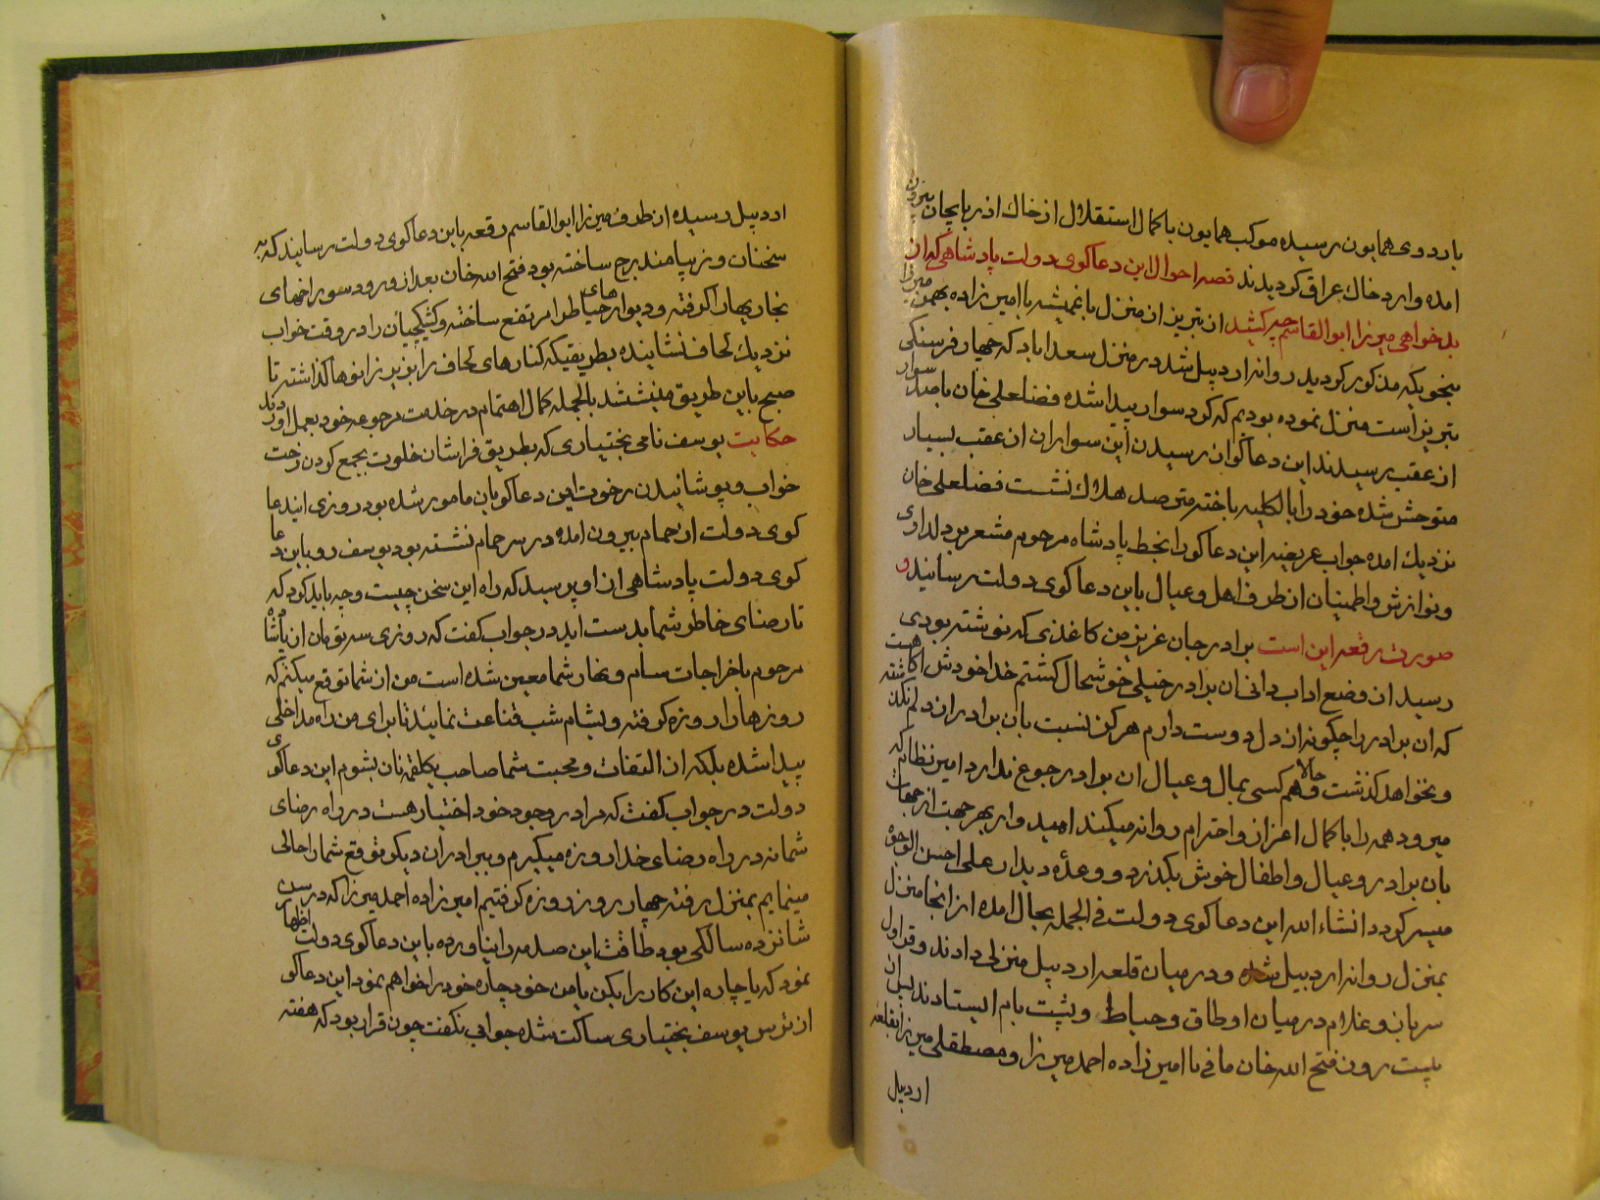 باردوی همایون رسیده موکب همایون با کمال استقلال از خاك اذربایجان بیرون
امده وارد خاك عراق کردیدند قصه احوال این دعاکوی دولت پادشاهی که از
بدخواهی میرزا ابوالقاسم چه کشید از تبریز ان منزل باغمیشه با امیرزاده بهمن میرزا
بنحویکه مذکور کردید روانه اردبیل شد در منزل سعداباد که چهار فرسنکی
تبریز است منزل نموده بودیم که کرد سوار پیدا شده فضلعلی خان با صد سوار
از عقب رسیدند این دعاکو از رسیدن این سواران از عقب بسیار
متوحش شده خود را بالکلیه باخته مترصد هلاك نشست فضلعلی خان
نزدیك امده جواب عریضه این دعاکو را بخط پادشاه مرحوم مشعر بر دلداری
و نوازش و اطمینان از طرف اهل و عیال باین دعاکوی دولت رسانید و
صورت رقعه این است برادر جان عزیز من کاغذی که نوشته بودی
رسید از وضع اداب دانی ان برادر خیلی خوشحال کشتم خدا خودش اکاه هست
که ان برادر را چکونه از دل دوست دارم هرکز نسبت بان برادر از دلم نکذشته
و نخواهد کذشت حالا هم کسی بمال و عیال ان برادر رجوع ندارد امیر نظام که
میرود همه را با کمال اعزاز و احترام روانه میکند امیدوارم بهر جهت از جهات
بان برادر و عیال و اطفال خوش بکذرد و وعدۀ دیدار علی احسن الوجوه
میسر کردد انشاء الله این دعاکوی دولت فی الجمله بحال امده از انجا منزل
بمنزل روانه اردبیل شده و در میان قلعه اردبیل منزلی دادند و قراول
سرباز و غلام در میان اوطاق و حیاط و پشت بام ایستادند پس از ان
بیست روز فتح الله خان مافی با امیرزاده احمد میرزا و مصطفقلی میرزا بقلعه
اردبیل
اردبیل رسیده از طرف میرزا ابوالقاسم رقعه باین دعاکوی دولت رسانید که به
سخنان و زیپامند برج ساخته بود فتح الله خان بعد از ورود سوراخهای
بخاریها را کرفته و دیوارهای حیاط را مرتفع ساخته و کشیکچیان را در وقت خواب
نزدیك لحاف نشاینده بطریقیکه کنارهای لحاف را بزیر زانوها کذاشته تا
صبح باین طریق مینشستند بالجمله کمال اهتمام در خدمت مرجوعه خود بعمل اوردند
حکایت یوسف نامی بختیاری که بطریق فراشان خلوت بجمع کردن رخت
خواب و پوشانیدن رخوت این دعاکویان مامور شده بود روزی ایندعا
کوی دولت از حمام بیرون امده در سر حمام نشسته بود یوسف رو باین دعا
کوی دولت پادشاهی از او پرسید که راه این سخن چیست و چه باید کرد که
تا رضای خاطر شما بدست اید در جواب کفت که روزی سه تومان از پادشاه
مرحوم باخراجات سام و نهار شما معین شده است من از شما توقع میکنم که
روزها را روزه کرفته و بشام شب قناعت نمائید تا برای من راه مداخلی
پیدا شده بلکه از التفات و محبت شما صاحب یکلقمه نان بشوم این دعاکوی
دولت در جواب کفت که مرا در وجود خود اختیار هست در راه رضای
شما نه در راه رضای خدا روزه میکیرم و ببرادران دیکر توقع شما را حالی
مینمایم بمنزل رفته چهار روز روزه کرفتیم امیرزاده احمد میرزا که در سن
شانزده سالکی بود طاقت این صدمه را نیاورده باین دعاکوی دولت اظهار
نمود که یا چاره این کار را بکن یا من خود چاره خود را خواهم نمود این دعاکو
از ترس یوسف بختیاری ساکت شده جوابی نکفت چون قرار بود که هفته